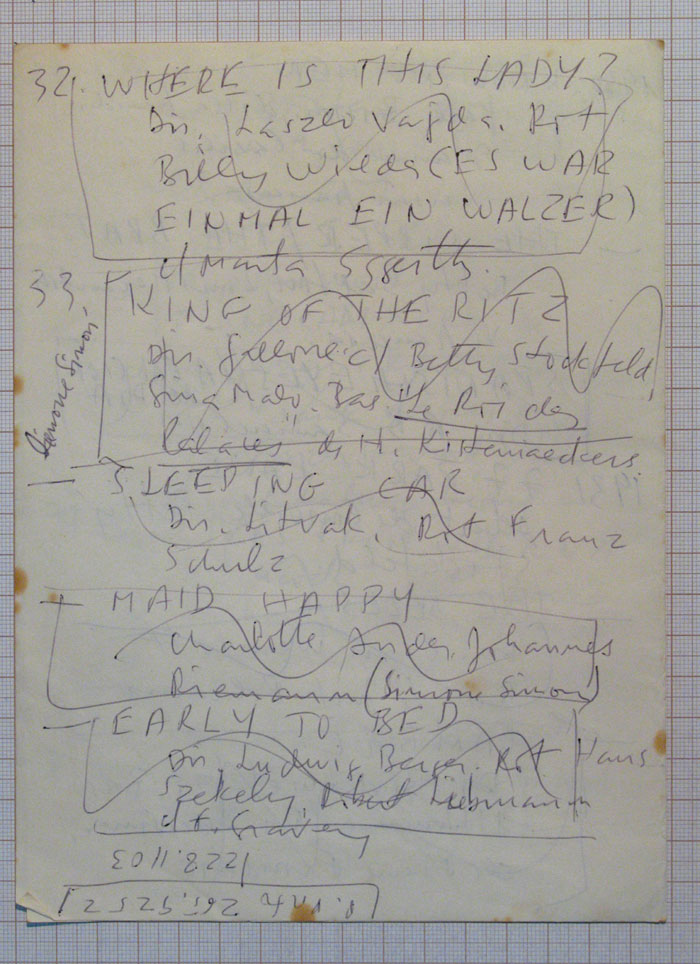 32. WHERE IS THIS LADY?
Dir. Laszlo Vajda. Rot
Billy Wilder (ES WAR
EINMAL EIN WALZER)
c/ Marta Eggerth.
33. KING OF THE RITZ
Dir. c/ Betty Stockfeld,
Gina Malo. Bas. "Le Roi des
Palaces" de H. Kistemaeckers.
Simone Simon.
— SLEEPING CAR
Dir. Litvak. Rot Franz
Schulz
— MAID HAPPY
Charlotte Ander. Johannes
Riemann (Simone Simon)
— EARLY TO BED
Dir. Ludwig Berger. Rot Hans
Szekely, Robert Liebmann
c/ F.
1228.1103
265.9252